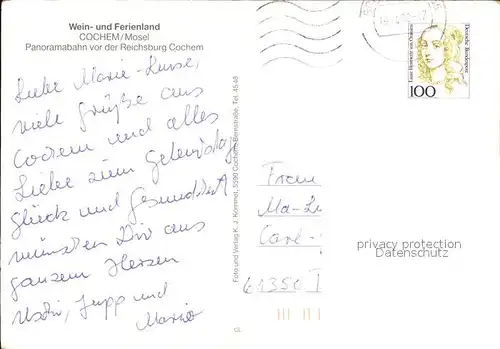 Wein- und Ferienland
COCHEM/Mosel
Panoramabahn vor der Reichsburg Cochem
Liebe Marie-Luise,
viele Grüße aus
Cochem und alles
Liebe zum Geburtstag
Glück und Gesundheit
wünschen Dir aus
ganzem Herzen
Jupp und
Maria
Foto und Verlag K. J. Hommel, 5590 Cochem, Bernstraße, Tel. 45 48
100
Deutsche Bundespost
Luise Henriette von Oranien
Frau
Ma-L
Carl-
61350
privacy protection
Datenschutz